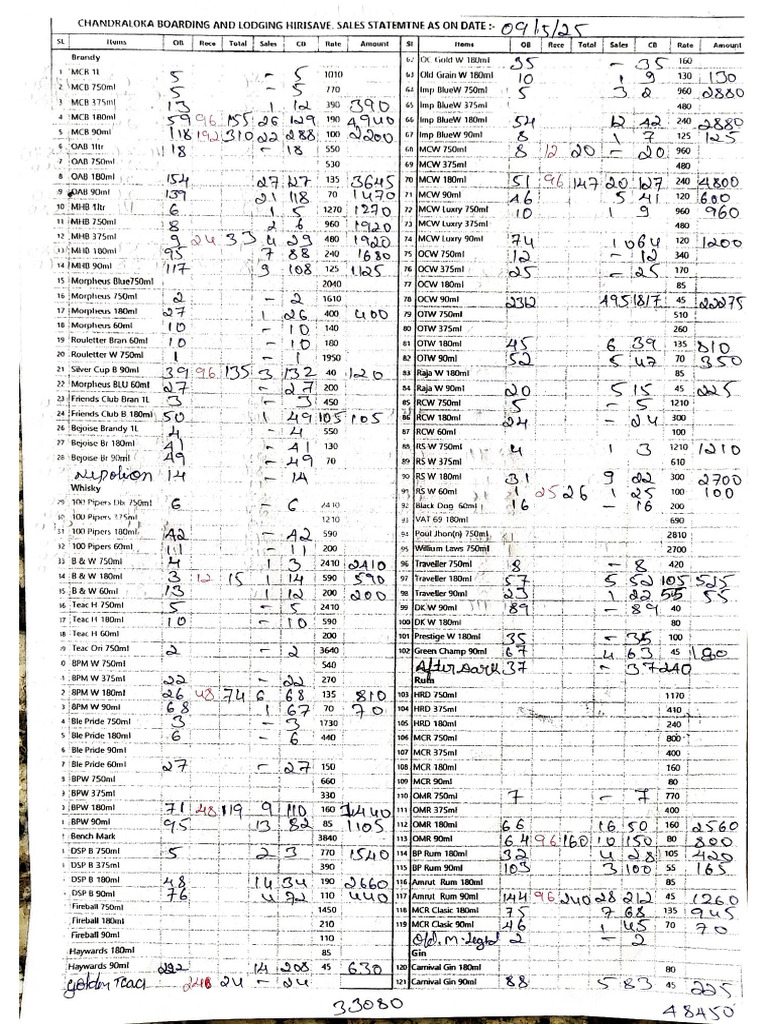 CHANDRALOKA BOARDING AND LODGING HIRISAVE. SALES STATEMTNE AS ON DATE :- 09/5/25
SL Items OB Rece Total Sales CB Rate Amount
Brandy
1 MCB 1l 5 - 5 1010
2 MCB 750ml 5 - 5 770
3 MCB 375ml 13 1 12 390 390
4 MCB 180ml 59 96 155 26 129 190 4940
5 MCB 90ml 118 192 310 22 288 100 2200
6 OAB 1ltr 18 - 18 550
7 OAB 750ml 530
8 OAB 180ml 154 27 127 135 3645
9 OAB 90ml 139 21 118 70 1470
10 MHB 1ltr 6 1 5 1270 1270
11 MHB 750ml 8 2 6 960 1920
12 MHB 375ml 9 24 33 4 29 480 1920
13 MHB 180ml 95 7 88 240 1680
14 MHB 90ml 117 9 108 125 1125
15 Morpheus Blue750ml 2040
16 Morpheus 750ml 2 - 2 1610
17 Morpheus 180ml 27 1 26 400 400
18 Morpheus 60ml 10 - 10 140
19 Rouletter Bran 60ml 10 - 10 180
20 Rouletter W 750ml 1 - 1 1950
21 Silver Cup B 90ml 39 96 135 3 132 40 120
22 Morpheus BLU 60ml 27 - 27 200
23 Friends Club Bran 1L 3 - 3 450
24 Friends Club B 180ml 50 1 49 105 105
26 Bejoise Brandy 1L 4 - 4 550
27 Bejoise Br 180ml 41 - 41 130
28 Bejoise Br 90ml 49 - 49 70
Nepolion 14 - 14
Whisky
29 100 Pipers Dlx 750ml 6 - 6 2410
30 100 Pipers 375ml 1210
31 100 Pipers 180ml 42 - 42 590
32 100 Pipers 60ml 11 - 11 200
33 B & W 750ml 4 1 3 2410 2410
34 B & W 180ml 3 12 15 1 14 590 590
35 B & W 60ml 13 1 12 200 200
36 Teac H 750ml 5 - 5 2410
37 Teac H 180ml 10 - 10 590
38 Teac H 60ml 200
39 Teac Ori 750ml 2 - 2 3640
0 8PM W 750ml 540
1 8PM W 375ml 22 - 22 270
2 8PM W 180ml 26 48 74 6 68 135 810
3 8PM W 90ml 68 1 67 70 70
4 Ble Pride 750ml 3 - 3 1730
5 Ble Pride 180ml 6 - 6 440
6 Ble Pride 90ml
7 Ble Pride 60ml 27 - 27 150
8 BPW 750ml 660
BPW 375ml 330
BPW 180ml 71 48 119 9 110 160 1440
BPW 90ml 95 13 82 85 1105
Bench Mark 3840
DSP B 750ml 5 2 3 770 1540
DSP B 375ml 390
DSP B 180ml 48 14 34 190 2660
DSP B 90ml 76 4 72 110 440
Fireball 750ml 1450
Fireball 180ml 210
Fireball 90ml 110
Haywards 180ml 85
Haywards 90ml 222 14 208 45 630
Golden Teac 24 24 - 24
33080
Sl Items OB Rece Total Sales CB Rate Amount
62 OC Gold W 180ml 35 - 35 160
63 Old Grain W 180ml 10 1 9 130 130
64 Imp BlueW 750ml 5 3 2 960 2880
65 Imp BlueW 375ml 480
66 Imp BlueW 180ml 54 12 42 240 2880
67 Imp BlueW 90ml 8 1 7 125 125
68 MCW 750ml 8 12 20 - 20 960
69 MCW 375ml 480
70 MCW 180ml 51 96 147 20 127 240 4800
71 MCW 90ml 46 5 41 120 600
72 MCW Luxry 750ml 10 1 9 960 960
73 MCW 480
74 MCW Luxry 90ml 74 10 64 120 1200
75 OCW 750ml 12 - 12 340
76 OCW 375ml 25 - 25 170
77 OCW 180ml 85
78 OCW 90ml 2312 495 1817 45 22275
79 OTW 750ml 510
80 OTW 375ml 260
81 OTW 180ml 45 6 39 135 810
82 OTW 90ml 52 5 47 70 350
83 Raja W 180ml 85
84 Raja W 90ml 20 5 15 45 225
85 RCW 750ml 5 - 5 1210
86 RCW 180ml 24 - 24 300
87 RCW 60ml 100
88 RS W 750ml 4 1 3 1210 1210
89 RS W 375ml 610
90 RS W 180ml 31 9 22 300 2700
91 RS W 60ml 1 25 26 1 25 100 100
92 Black Dog 60ml 16 - 16 200
93 VAT 69 180ml 690
94 Poul Jhon(n) 750ml 2810
95 Willium Laws 750ml 2700
96 Traveller 750ml 8 - 8 420
97 Traveller 180ml 57 5 52 105 525
98 Traveller 90ml 23 1 22 55 55
99 DK W 90ml 89 - 89 40
100 DK W 180ml 80
101 Prestige W 180ml 35 - 35 100
102 Green Champ 90ml 67 4 63 45 180
After Dark 37 - 37 240
Rum
103 HRD 750ml 1170
104 HRD 375ml 410
105 HRD 180ml 240
106 MCR 750ml 800
107 MCR 375ml 400
108 MCR 180ml 160
109 MCR 90ml 80
110 OMR 750ml 7 - 7 770
111 OMR 375ml 400
112 OMR 180ml 66 16 50 160 2560
113 OMR 90ml 64 96 160 10 150 80 800
114 BP Rum 180ml 32 4 28 105 420
115 BP Rum 90ml 103 3 100 55 165
116 Amrut Rum 180ml 80
117 Amrut Rum 90ml 144 96 240 28 212 45 1260
118 MCR Clasic 180ml 75 7 68 135 945
119 MCR Clasic 90ml 46 1 45 70 70
Old.M.Legnd 2 - 2
Gin
120 Carnival Gin 180ml 80
121 Carnival Gin 90ml 88 5 83 45 225
48450